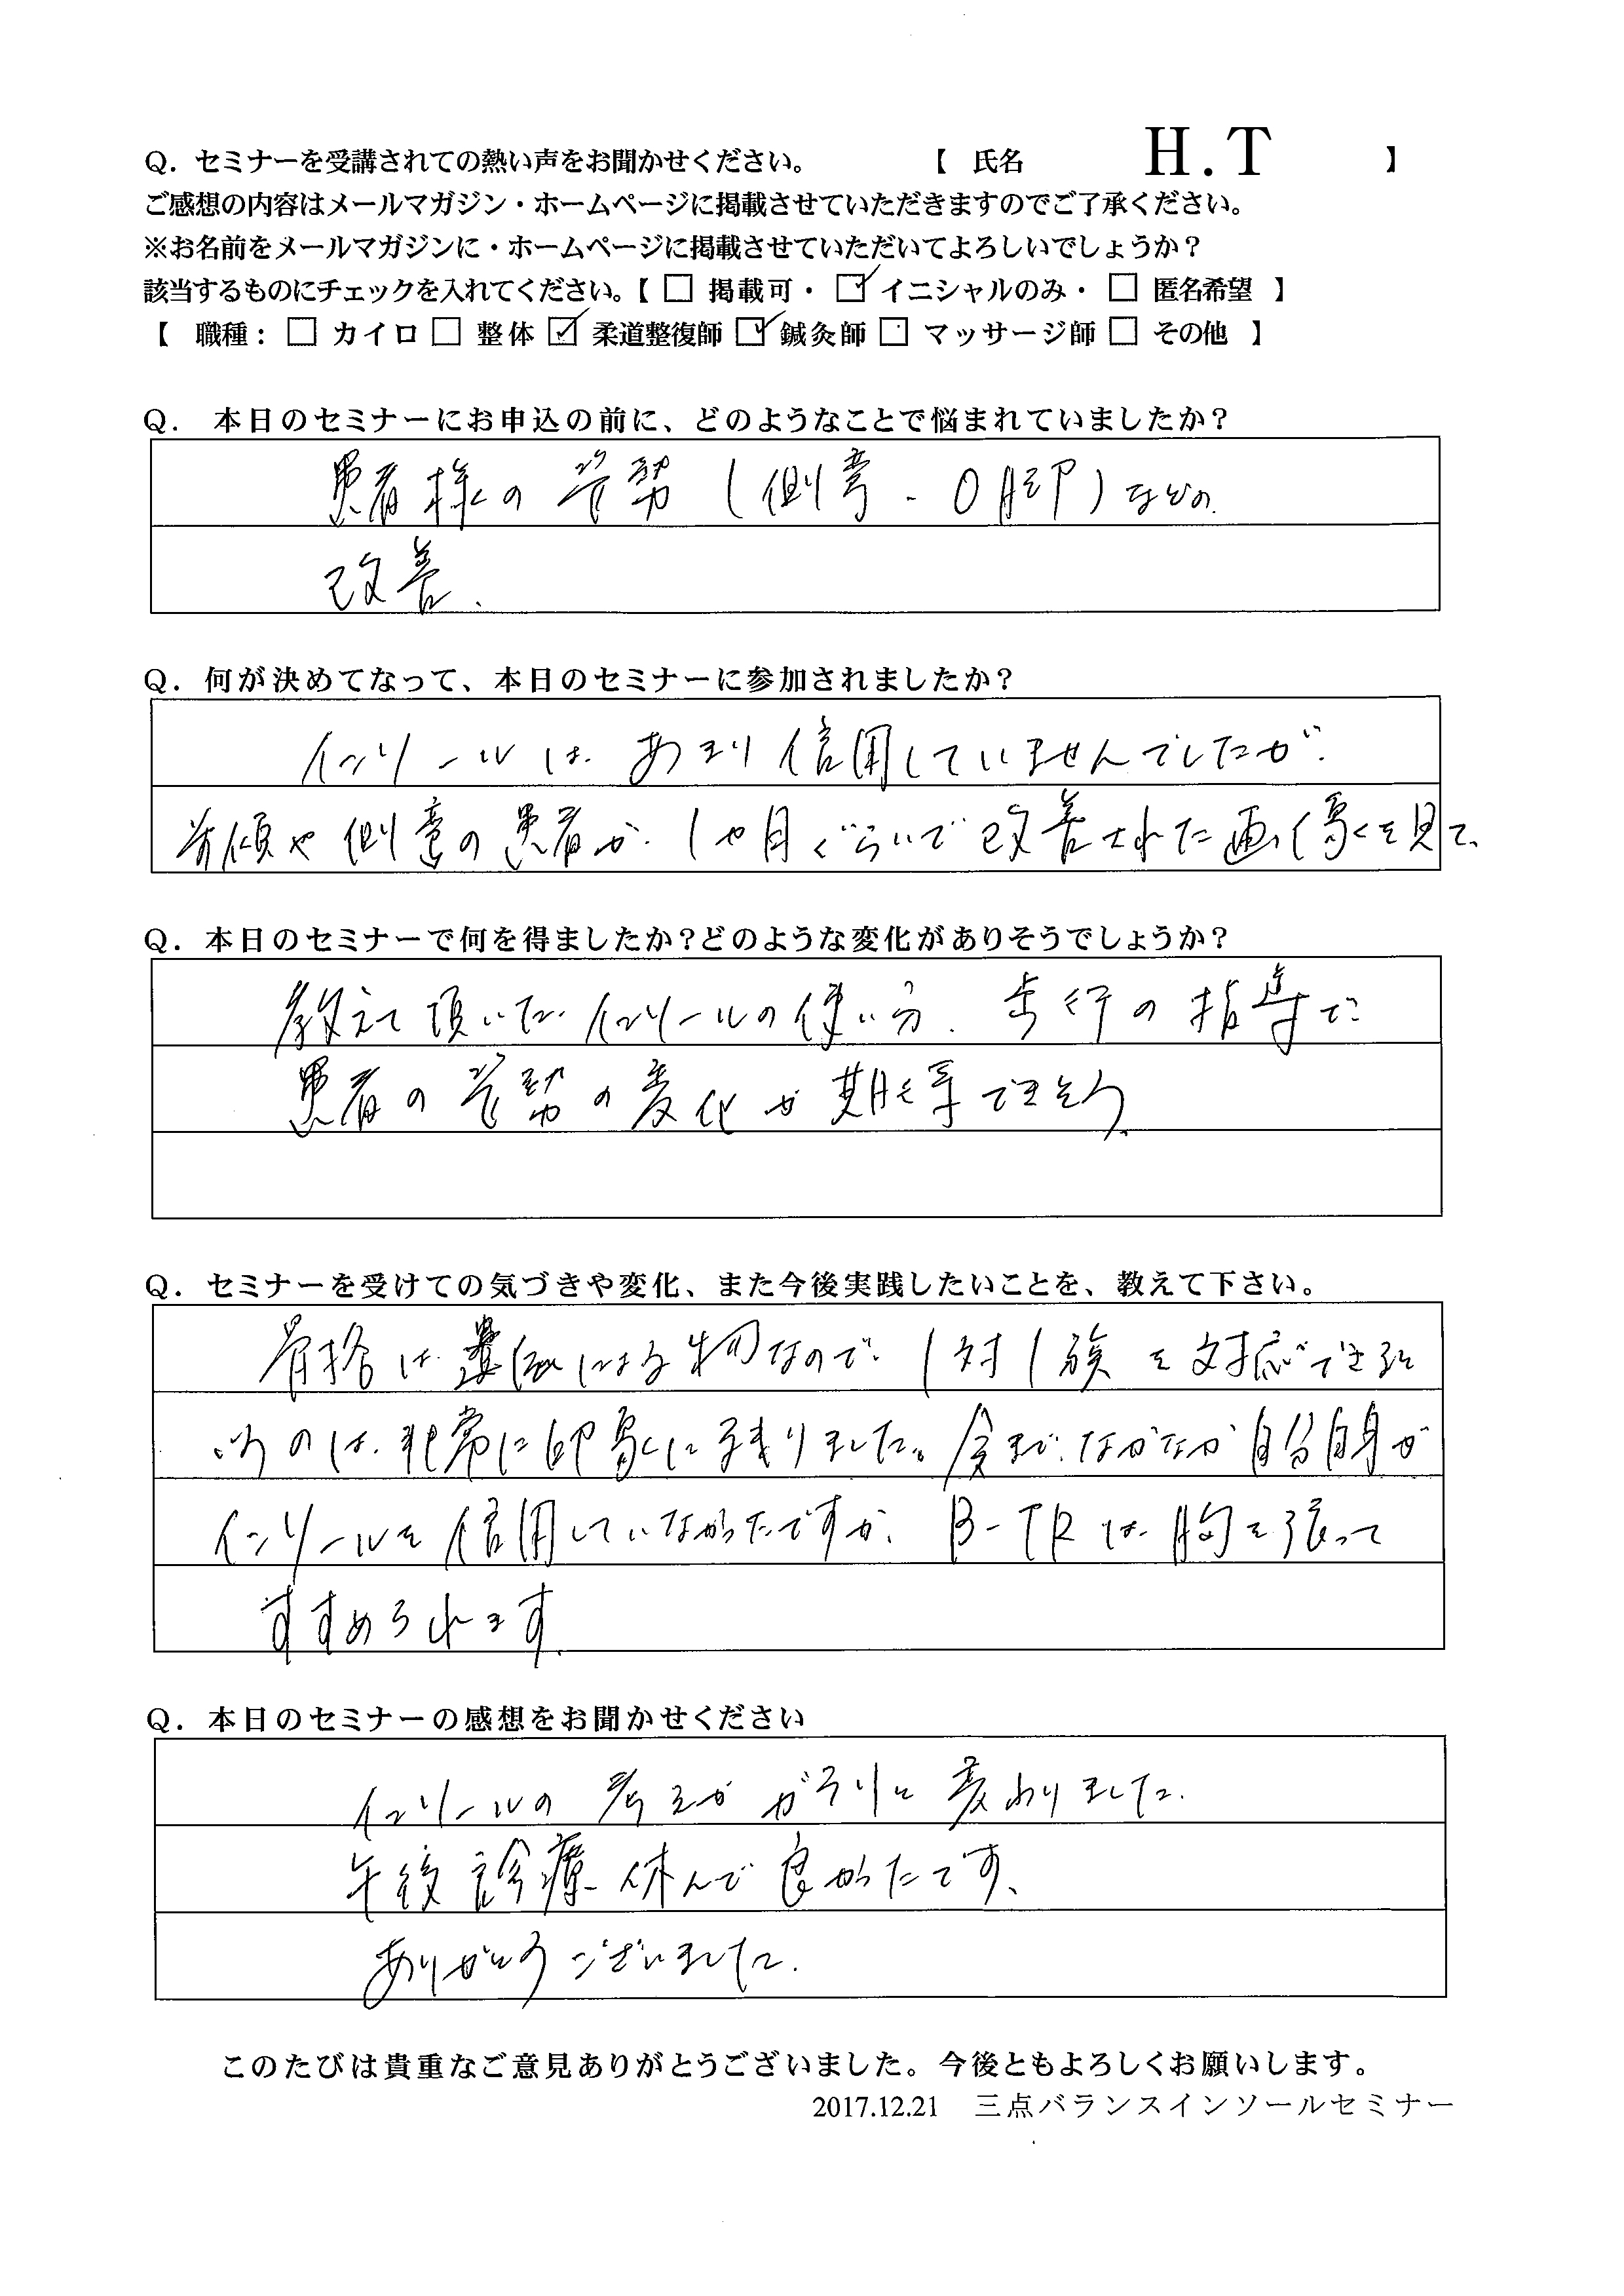 Q. セミナーを受講されての熱い声をお聞かせください。 【 氏名 H.T 】
ご感想の内容はメールマガジン・ホームページに掲載させていただきますのでご了承ください。
※お名前をメールマガジンに・ホームページに掲載させていただいてよろしいでしょうか？
該当するものにチェックを入れてください。【 □ 掲載可・ ☑ イニシャルのみ・ □ 匿名希望 】
【 職種： □ カイロ □ 整体 ☑ 柔道整復師 ☑ 鍼灸師 □ マッサージ師 □ その他 】
Q. 本日のセミナーにお申込の前に、どのようなことで悩まれていましたか？
患者様の姿勢（側弯、O脚）などの
改善.
Q. 何が決めてなって、本日のセミナーに参加されましたか？
インソールは、あまり信用していませんでしたが、
前傾や側弯の患者が、1ヶ月ぐらいで改善された画像を見て、
Q. 本日のセミナーで何を得ましたか？どのような変化がありそうでしょうか？
教えて頂いたインソールの使い方、歩行の指導で
患者の姿勢の変化が期待できそう.
Q. セミナーを受けての気づきや変化、また今後実践したいことを、教えて下さい。
骨格は遺伝による物なので、1対1族を対応できると
いうのは、非常に印象に残りました。今まで、なかなか自分自身が
インソールを信用していなかったですが、B-TRは胸を張って
すすめられます.
Q. 本日のセミナーの感想をお聞かせください
インソールの考えがガラリと変わりました.
午後診療休んで良かったです、
ありがとうございました.
このたびは貴重なご意見ありがとうございました。今後ともよろしくお願いします。
2017.12.21 三点バランスインソールセミナー